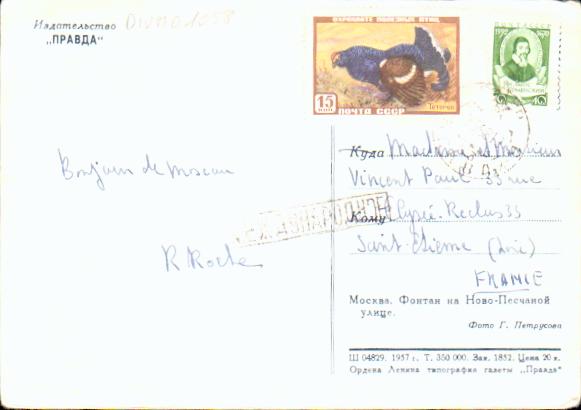 Издательство
„ПРАВДА“
Divmo 1058
ОХРАНЯЙТЕ ПОЛЕЗНЫХ ПТИЦ
15 КОП
ПОЧТА СССР
Тетерев
ПОЧТА СССР
1592 1670
40
Bonjour de Moscou
R Roche
МЕЖДУНАРОДНОЕ
Куда Madame et Monsieur
Vincent Paul 33 rue
Кому Elysée Reclus 33
Saint-Etienne (Loire)
FRANCE
Москва. Фонтан на Ново-Песчаной
улице.
Фото Г. Петрусова
Ш 04829. 1957 г. Т. 350 000. Зак. 1852. Цена 20 к.
Ордена Ленина типография газеты „Правда“